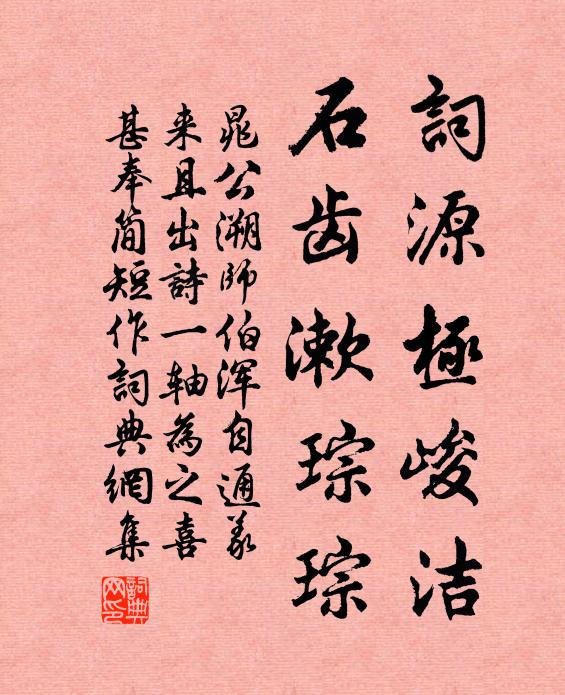 詞源極峻洁
石齿漱琮琮
晁公溯師伯浑自通义
来且出詩一轴為之喜
甚奉简短作詞典網集
詞典
网印